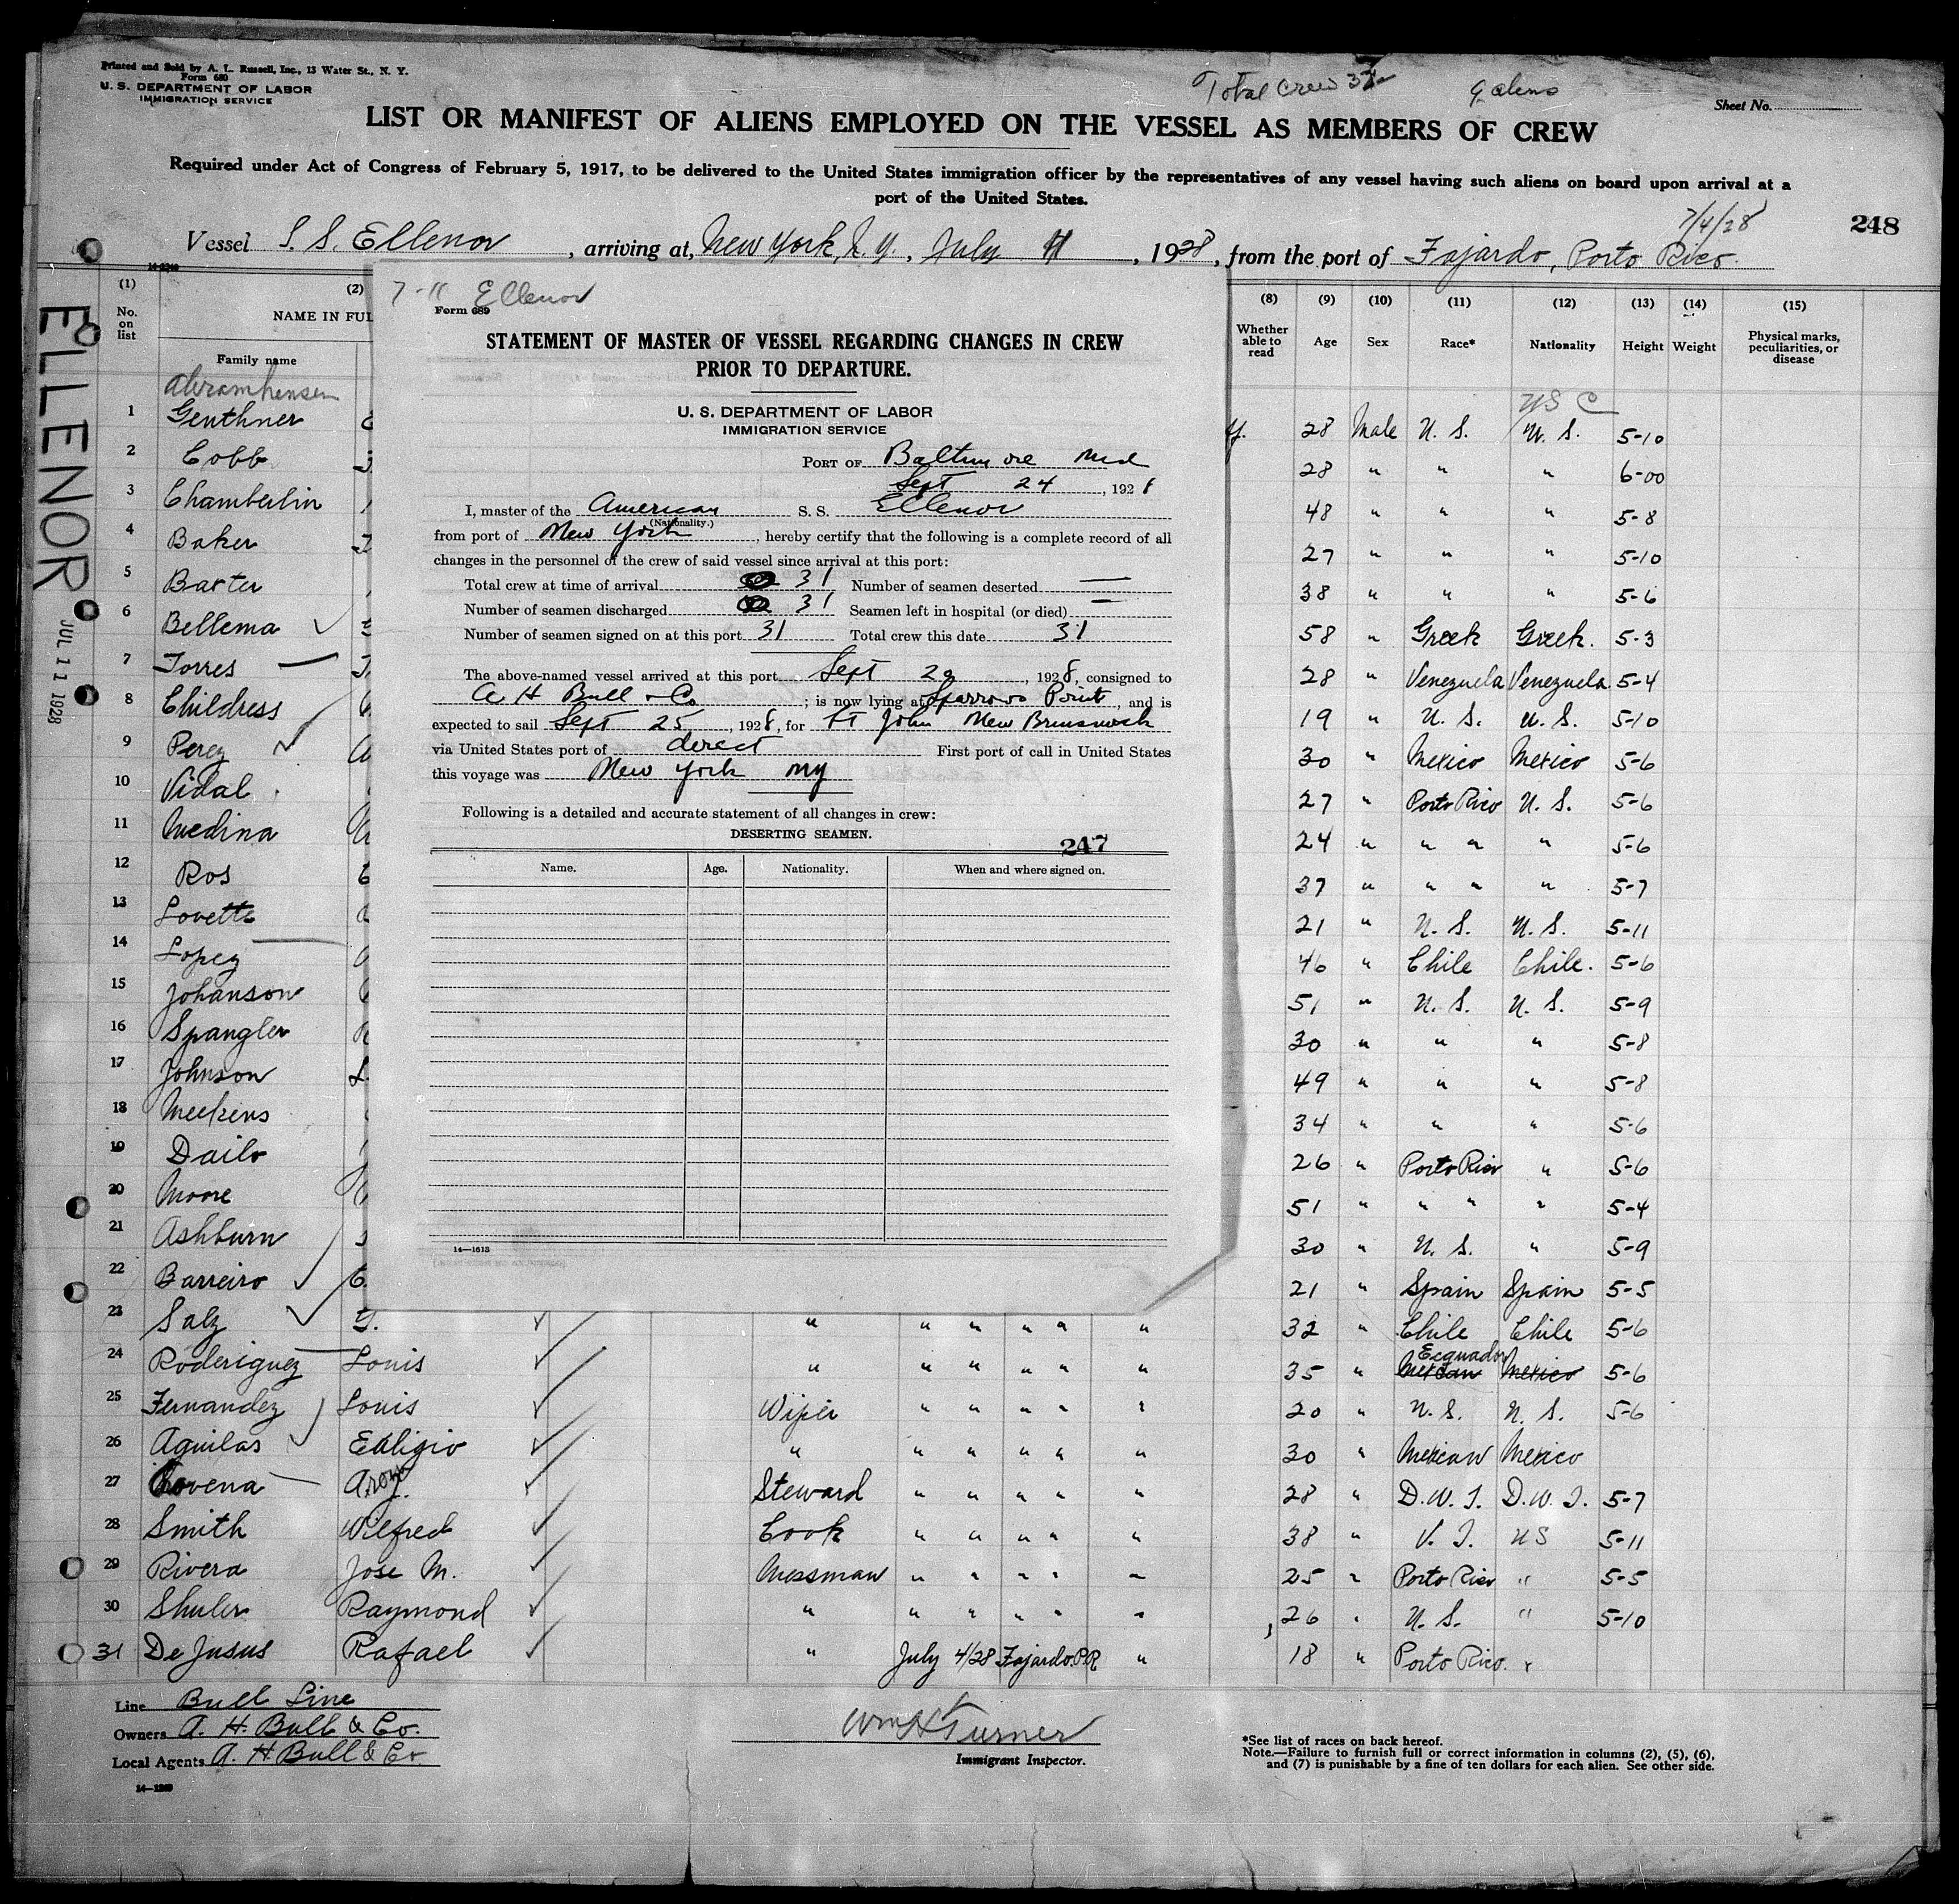 Printed and Sold by A. L. Russell, Inc., 13 Water St., N. Y.
Form 680
U. S. DEPARTMENT OF LABOR
IMMIGRATION SERVICE
Total Crew
Sheet No.
LIST OR MANIFEST OF ALIENS EMPLOYED ON THE VESSEL AS MEMBERS OF CREW
Required under Act of Congress of February 5, 1917, to be delivered to the United States immigration officer by the representatives of any vessel having such aliens on board upon arrival at a
port of the United States.
7/4/28
248
Vessel S. S. Ellenor, arriving at, New York, N. Y., July 11, 1928, from the port of Fajardo, Porto Rico
ELLENOR
JUL 11 1928
(1) (2)
No. on list
NAME IN FUL
Family name
Abramhensen
1 Genthner
2 Cobb
3 Chamberlin
4 Baker
5 Baxter
6 Bellema
7 Torres
8 Childress
9 Perez
10 Vidal
11 Medina
12 Ros
13 Lovette
14 Lopez
15 Johanson
16 Spangler
17 Johnson
18 Meekens
19 Dailo
20 Moore
21 Ashburn
22 Barreiro
23 Salz
7-11 Ellenor
Form 689
STATEMENT OF MASTER OF VESSEL REGARDING CHANGES IN CREW
PRIOR TO DEPARTURE.
U. S. DEPARTMENT OF LABOR
IMMIGRATION SERVICE
PORT OF Baltimore Md
Sept 24, 1928
I, master of the American S. S. Ellenor
(Nationality.)
from port of New York, hereby certify that the following is a complete record of all
changes in the personnel of the crew of said vessel since arrival at this port:
Total crew at time of arrival 31 Number of seamen deserted —
Number of seamen discharged 31 Seamen left in hospital (or died) —
Number of seamen signed on at this port 31 Total crew this date 31
The above-named vessel arrived at this port Sept, 1928, consigned to
A H Bull & Co; is now lying at Sparrows Point, and is
expected to sail Sept 25, 1928, for St John New Brunswick
via United States port of direct First port of call in United States
this voyage was New York NY
Following is a detailed and accurate statement of all changes in crew:
DESERTING SEAMEN.
247
Name. Age. Nationality. When and where signed on.
14—1613
(8) (9) (10) (11) (12) (13) (14) (15)
Whether able to read Age Sex Race* Nationality Height Weight Physical marks, peculiarities, or disease
US C
y. 28 Male U. S. U. S. 5-10
28 " " " 6-00
48 " " " 5-8
27 " " " 5-10
38 " " " 5-6
58 " Greek Greek. 5-3
28 " Venezuela Venezuela 5-4
19 " U. S. U. S. 5-10
30 " Mexico Mexico 5-6
27 " Porto Rico U. S. 5-6
24 " " " " 5-6
37 " " " " 5-7
21 " U. S. U. S. 5-11
46 " Chile Chile. 5-6
51 " U. S. U. S. 5-9
30 " " " 5-8
49 " " " 5-8
34 " " " 5-6
26 " Porto Rico " 5-6
51 " " " " 5-4
30 " U. S. " 5-9
21 " Spain Spain 5-5
" " " " " " 32 " Chile Chile 5-6
Ecquador
24 Roderiguez Louis " " " " " " 35 " Mexican Mexico 5-6
25 Fernandez Louis Wiper " " " " " 20 " U. S. U. S. 5-6
26 Aguilas Eligio " " " " " " 30 " Mexican Mexico
27 Steward " " " " " 28 " D. W. I. D. W. I. 5-7
28 Smith Wilfred Cook " " " " 38 " V. I. US 5-11
29 Rivera Jose M. Messman " " " " " 25 " Porto Rico " 5-5
30 Shuler Raymond " " " " " " 26 " U. S. " 5-10
31 De Jusus Rafael " July 4/28 Fajardo P.R " 18 " Porto Rico. "
Line Bull Line
Owners A. H. Bull & Co.
Local Agents A. H Bull & Co
14—1240
Wm H Turner
Immigrant Inspector.
*See list of races on back hereof.
Note.—Failure to furnish full or correct information in columns (2), (5), (6),
and (7) is punishable by a fine of ten dollars for each alien. See other side.